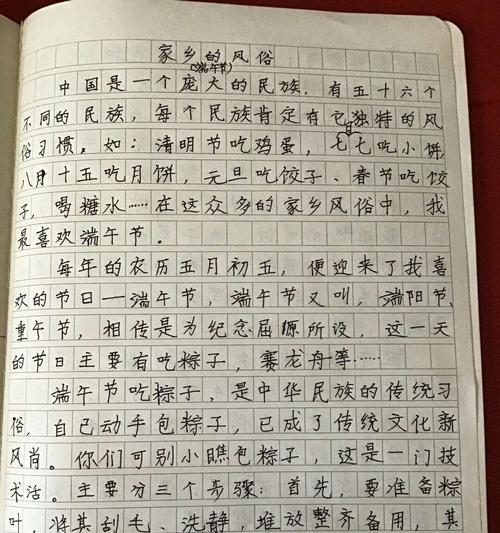 家乡的风俗
(端午节)
中国是一个庞大的民族，有五十六个
不同的民族，每个民族肯定有它独特的风
俗习惯。如：清明节吃鸡蛋，七七吃小饼，
八月十五吃月饼，元旦吃饺子、春节吃饺
子，喝糖水……在这众多的家乡风俗中，我
最喜欢端午节。
每年的农历五月初五，便迎来了我喜
欢的节日——端午节，端午节又叫，端阳节、
重午节，相传是为纪念屈原所设，这一天
的节日主要有吃粽子，赛龙舟等……
端午节吃粽子，是中华民族的传统习
俗，自己动手包粽子，已成了传统文化新
风肖。你们可别小瞧包粽子，这是一门技
术活。主要分三个步骤：首先，要准备粽
叶，将其刮毛、洗静，堆放整齐备用，其